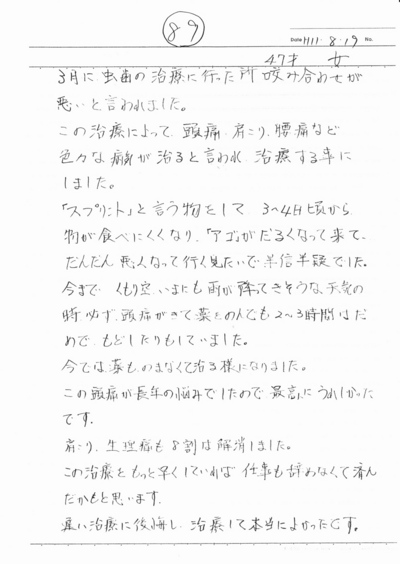 89
Date H11・8・19 No.
47才 女
3月に虫歯の治療に行った所 咬み合わせが
悪いと言われました。
この治療によって、頭痛、肩こり、腰痛など
色々な病気が治ると言われ 治療する事に
しました。
「スプリント」と言う物をして 3〜4日頃から
物が食べにくくなり、「アゴ」がだるくなって来て、
だんだん悪くなって行く見たいで半信半疑でした。
今まで くもり空、いまにも雨が降ってきそうな天気の
時 必ず、頭痛がきて薬をのんでも2〜3時間はだ
めで、もどしたりもしていました。
今では、薬も、のまなくて治る様になりました。
この頭痛が長年の悩みでしたので 最高にうれしかった
です。
肩こり、生理痛も8割は解消しました。
この治療をもっと早くしていれば 仕事も辞めなくて済ん
だかもと思います。
遅い治療に後悔し、治療して本当によかったです。